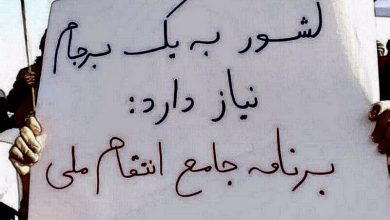 کشور به یک برجام
نیاز دارد:
برنامه جامع انتقام ملی